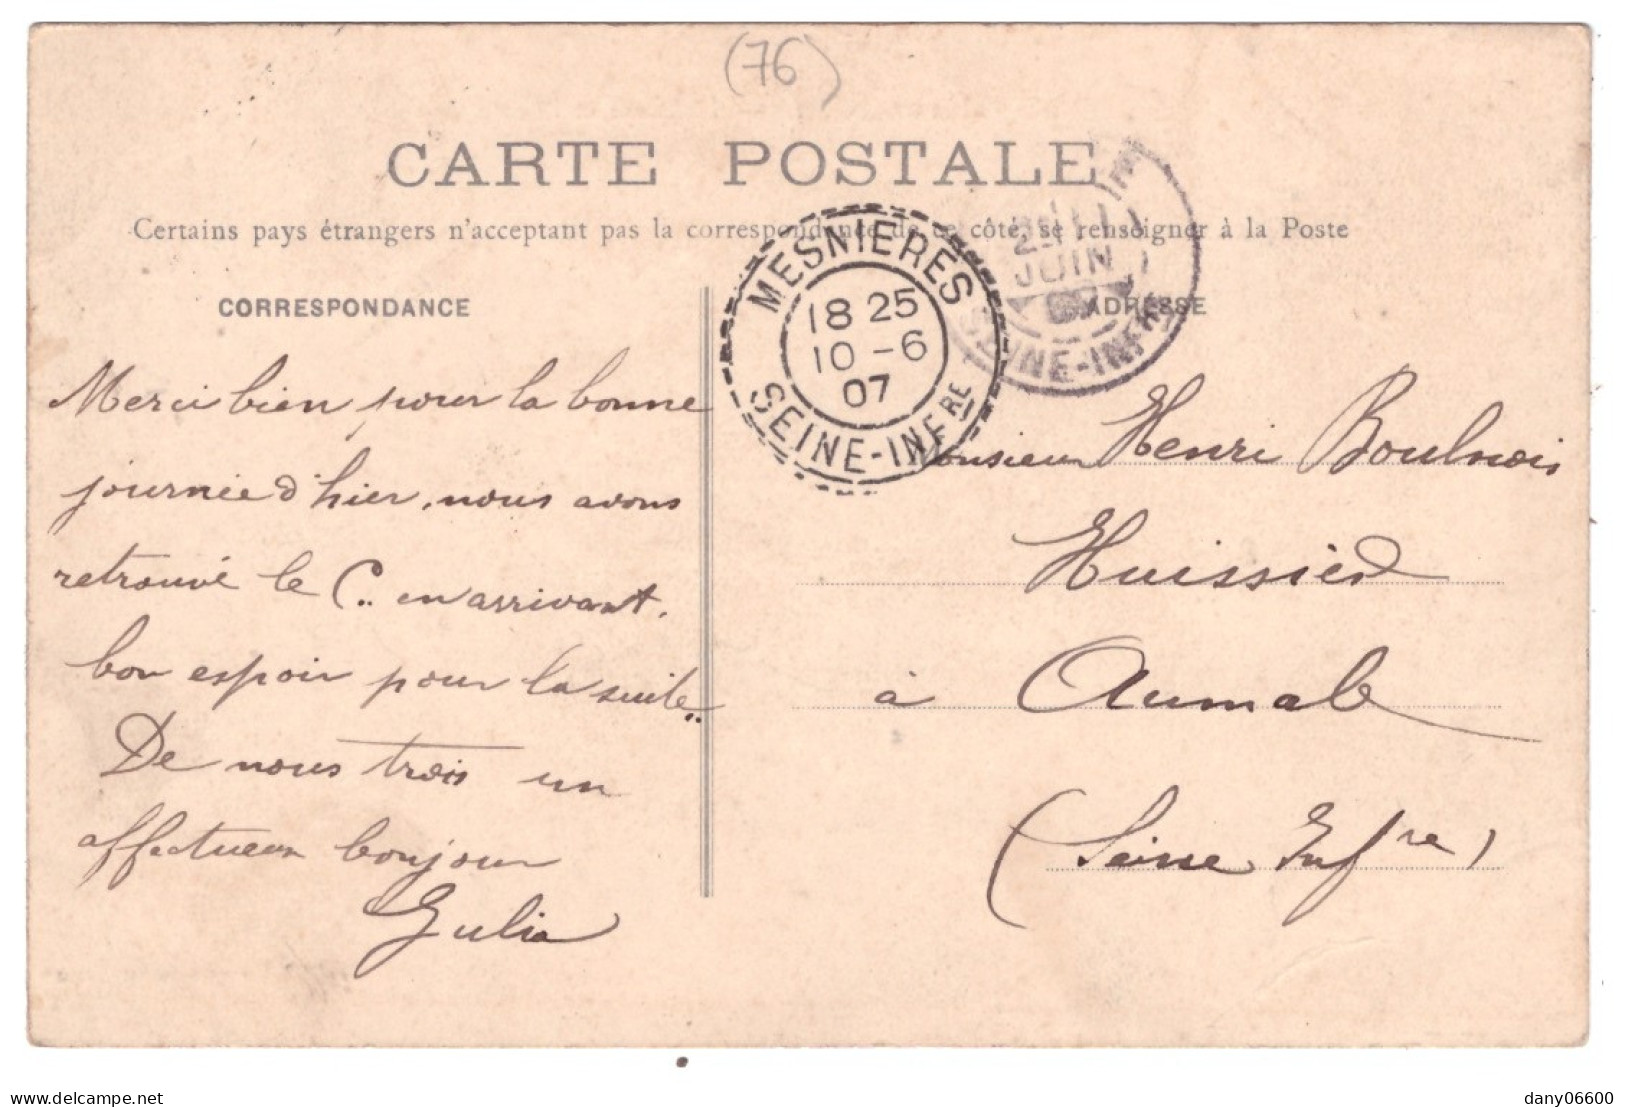 (76)
CARTE POSTALE
Certains pays étrangers n'acceptant pas la correspondance de ce côté, se renseigner à la Poste
CORRESPONDANCE
Merci bien pour la bonne
journée d'hier, nous avons
retrouvé le C.. en arrivant.
bon espoir pour la suite..
De nous trois un
affectueux bonjour
Julia
MESNIERES
18 25
10 - 6
07
SEINE-INFRE
JUIN
SEINE-INFRE
ADRESSE
Monsieur Henri Boulnois
Huissier
à Aumale
(Seine Infre)
delcampe.net
dany06600